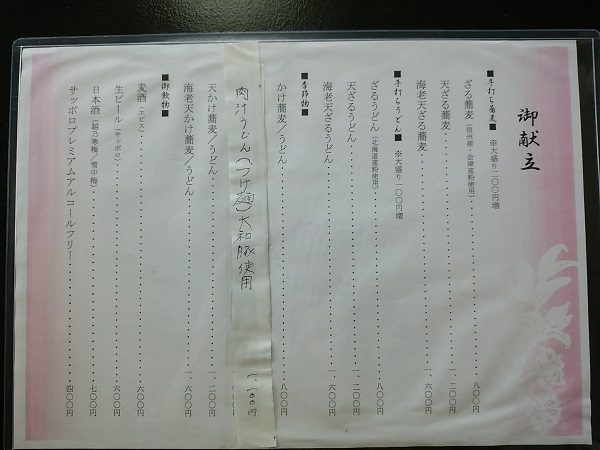 御献立
■手打ち蕎麦■ ※大盛り二〇〇円増
ざる蕎麦（信州産・会津産粉使用）・・・・・・八〇〇円
天ざる蕎麦・・・・・・一、二〇〇円
海老天ざる蕎麦・・・・・・一、六〇〇円
■手打ちうどん■ ※大盛り一〇〇円増
ざるうどん（北海道産粉使用）・・・・・・八〇〇円
天ざるうどん・・・・・・一、二〇〇円
海老天ざるうどん・・・・・・一、六〇〇円
■季節物■
かけ蕎麦／うどん・・・・・・八〇〇円
肉汁うどん（つけ麺）大和豚使用 一、一〇〇円
天かけ蕎麦／うどん・・・・・・一、二〇〇円
海老天かけ蕎麦／うどん・・・・・・一、六〇〇円
■御飲物■
麦酒（エビス）・・・・・・六〇〇円
生ビール（サッポロ）・・・・・・六〇〇円
日本酒（越乃寒梅／雪中梅）・・・・・・七〇〇円
サッポロプレミアムアルコールフリー・・・・・・四〇〇円